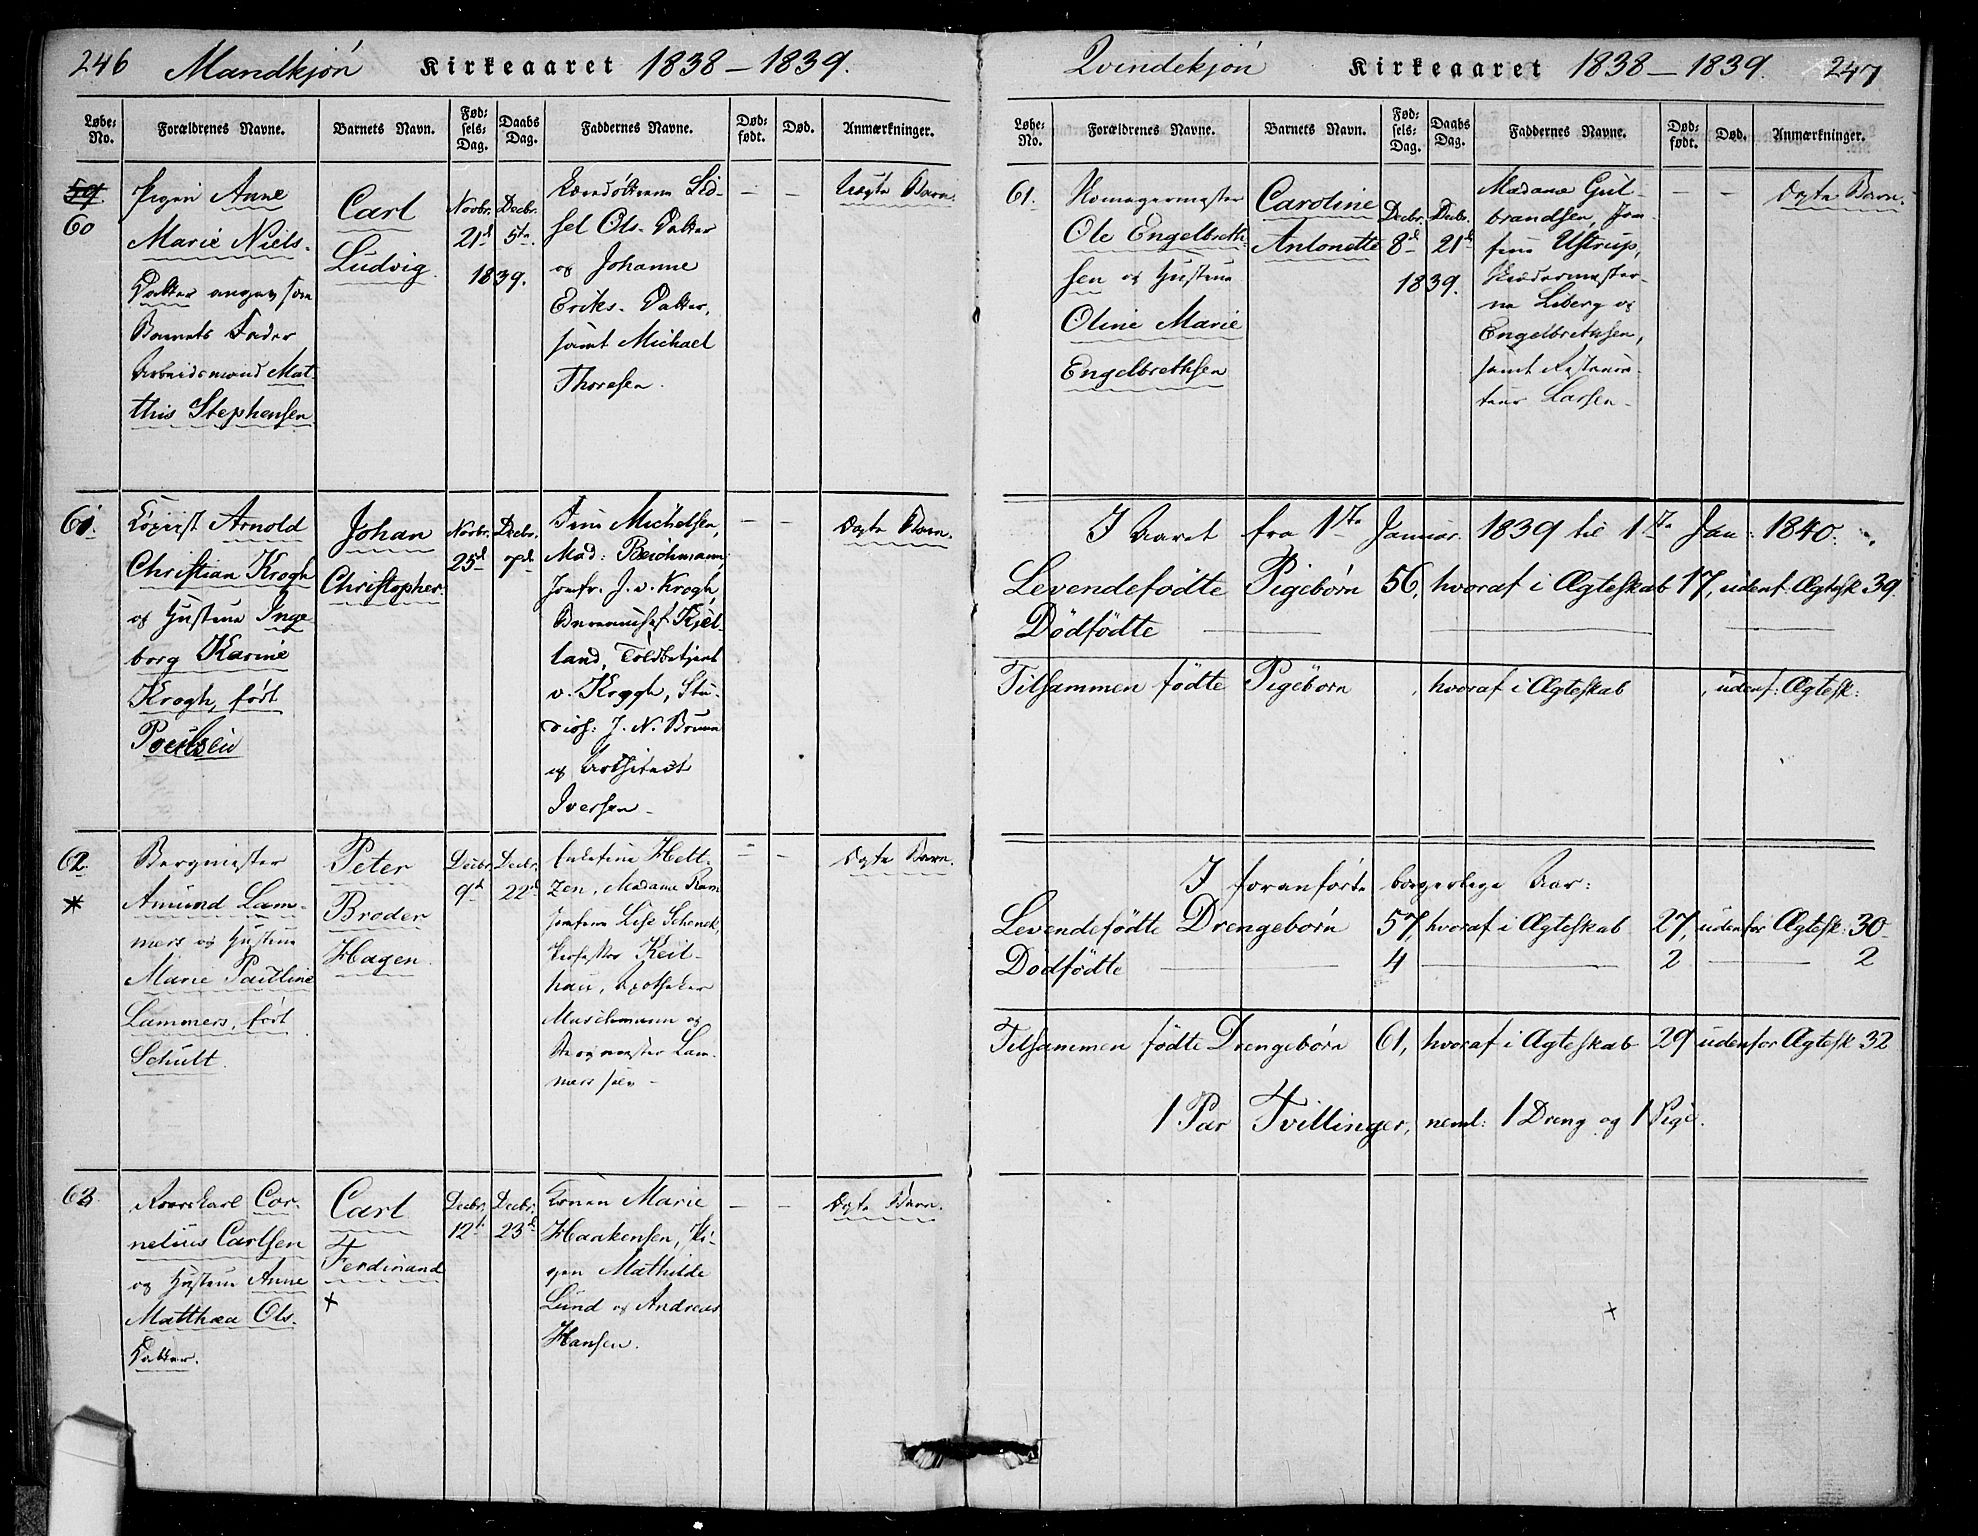 246 Mandkjøn Kirkeaaret 1838–1839.
Løbe-No. Forældrenes Navne. Barnets Navn. Fød-sels-Dag. Daabs Dag. Faddernes Navne. Død-født. Død. Anmærkninger.
59.
60
Pigen Anne
Marie Niels-
Datter angav som
Barnets Fader
Arbeidsmand Mat-
this Stephensen
Carl
Ludvig.
Novbr.
21d
Decbr.
5te
1839.
Sid-
sel Ols-Datter
og Johanne
Eriks-Datter,
samt Michael
Thoresen.
— —
Uægte Barn.
61.
Copiist Arnold
Christian Krogh
og Hustrue Inge
borg Karine
Krogh, født
Poulsen
Johan
Christopher.
Novbr.
25d
Decbr.
7de
Frue Michelsen,
Mad: Beichmann,
Jomfr. J. v. Krogh,
Kjel-
land, Toldbetjent
v. Krogh, Stu-
dios: J. N. Bruun
og Architect
Iversen –
— —
Ægte Barn.
62
*
Bergmester
Amund Lam-
mers og Hustrue
Marie Pauline
Lammers, født
Schult.
Peter
Broder
Hagen.
Decbr.
9d
Decbr.
22d
Helt-
zen, Madame Ram
Jomfrue Lise Schenck,
Professor Keil-
hau, Apotheker
Maschmann og
Bergmester Lam-
mers selv –
— —
Ægte Barn.
63.
Cor-
nelius Carlsen
og Hustrue Anne
Matthea Ols-
Datter.
Carl
Ferdinand
+
Decbr.
12t
Decbr.
23d
Konen Marie
Haakensen, Pi-
gen Mathilde
Lund og Andreas
Hansen.
— —
Ægte Barn.
Qvindekjøn Kirkeaaret 1838–1839. 247
Løbe-No. Forældrenes Navne. Barnets Navn. Fød-sels-Dag. Daabs Dag. Faddernes Navne. Død-født. Død. Anmærkninger.
61.
Ole Engelbreth-
sen og Hustrue
Oline Marie
Engelbrethsen
Caroline
Antonette
Decbr.
8d
Decbr.
21d
1839.
Madame Gul-
brandsen, Jom
frue Ustrup,
Skrædermester-
ne Leberg og
Engelbrethsen,
samt Restaura-
teur Larsen –
— —
Ægte Barn.
I Aaret fra 1ste Januar 1839 til 1ste Jan: 1840.
Levendefødte Pigebørn 56, hvoraf i Ægteskab 17, udenf: Ægtesk 39.
Dødfødte — — —
Tilsammen fødte Pigebørn , hvoraf i Ægteskab , udenf: Ægtesk:
I foranførte borgerlige Aar:
Levendefødte Drengebørn 57, hvoraf i Ægteskab 27, udenfor Ægtesk: 30
Dødfødte — 4 — 2 — 2
Tilsammen fødte Drengebørn 61, hvoraf i Ægteskab 29 udenfor Ægtesk 32
1 Par Tvillinger, neml: 1 Dreng og 1 Pige.
+